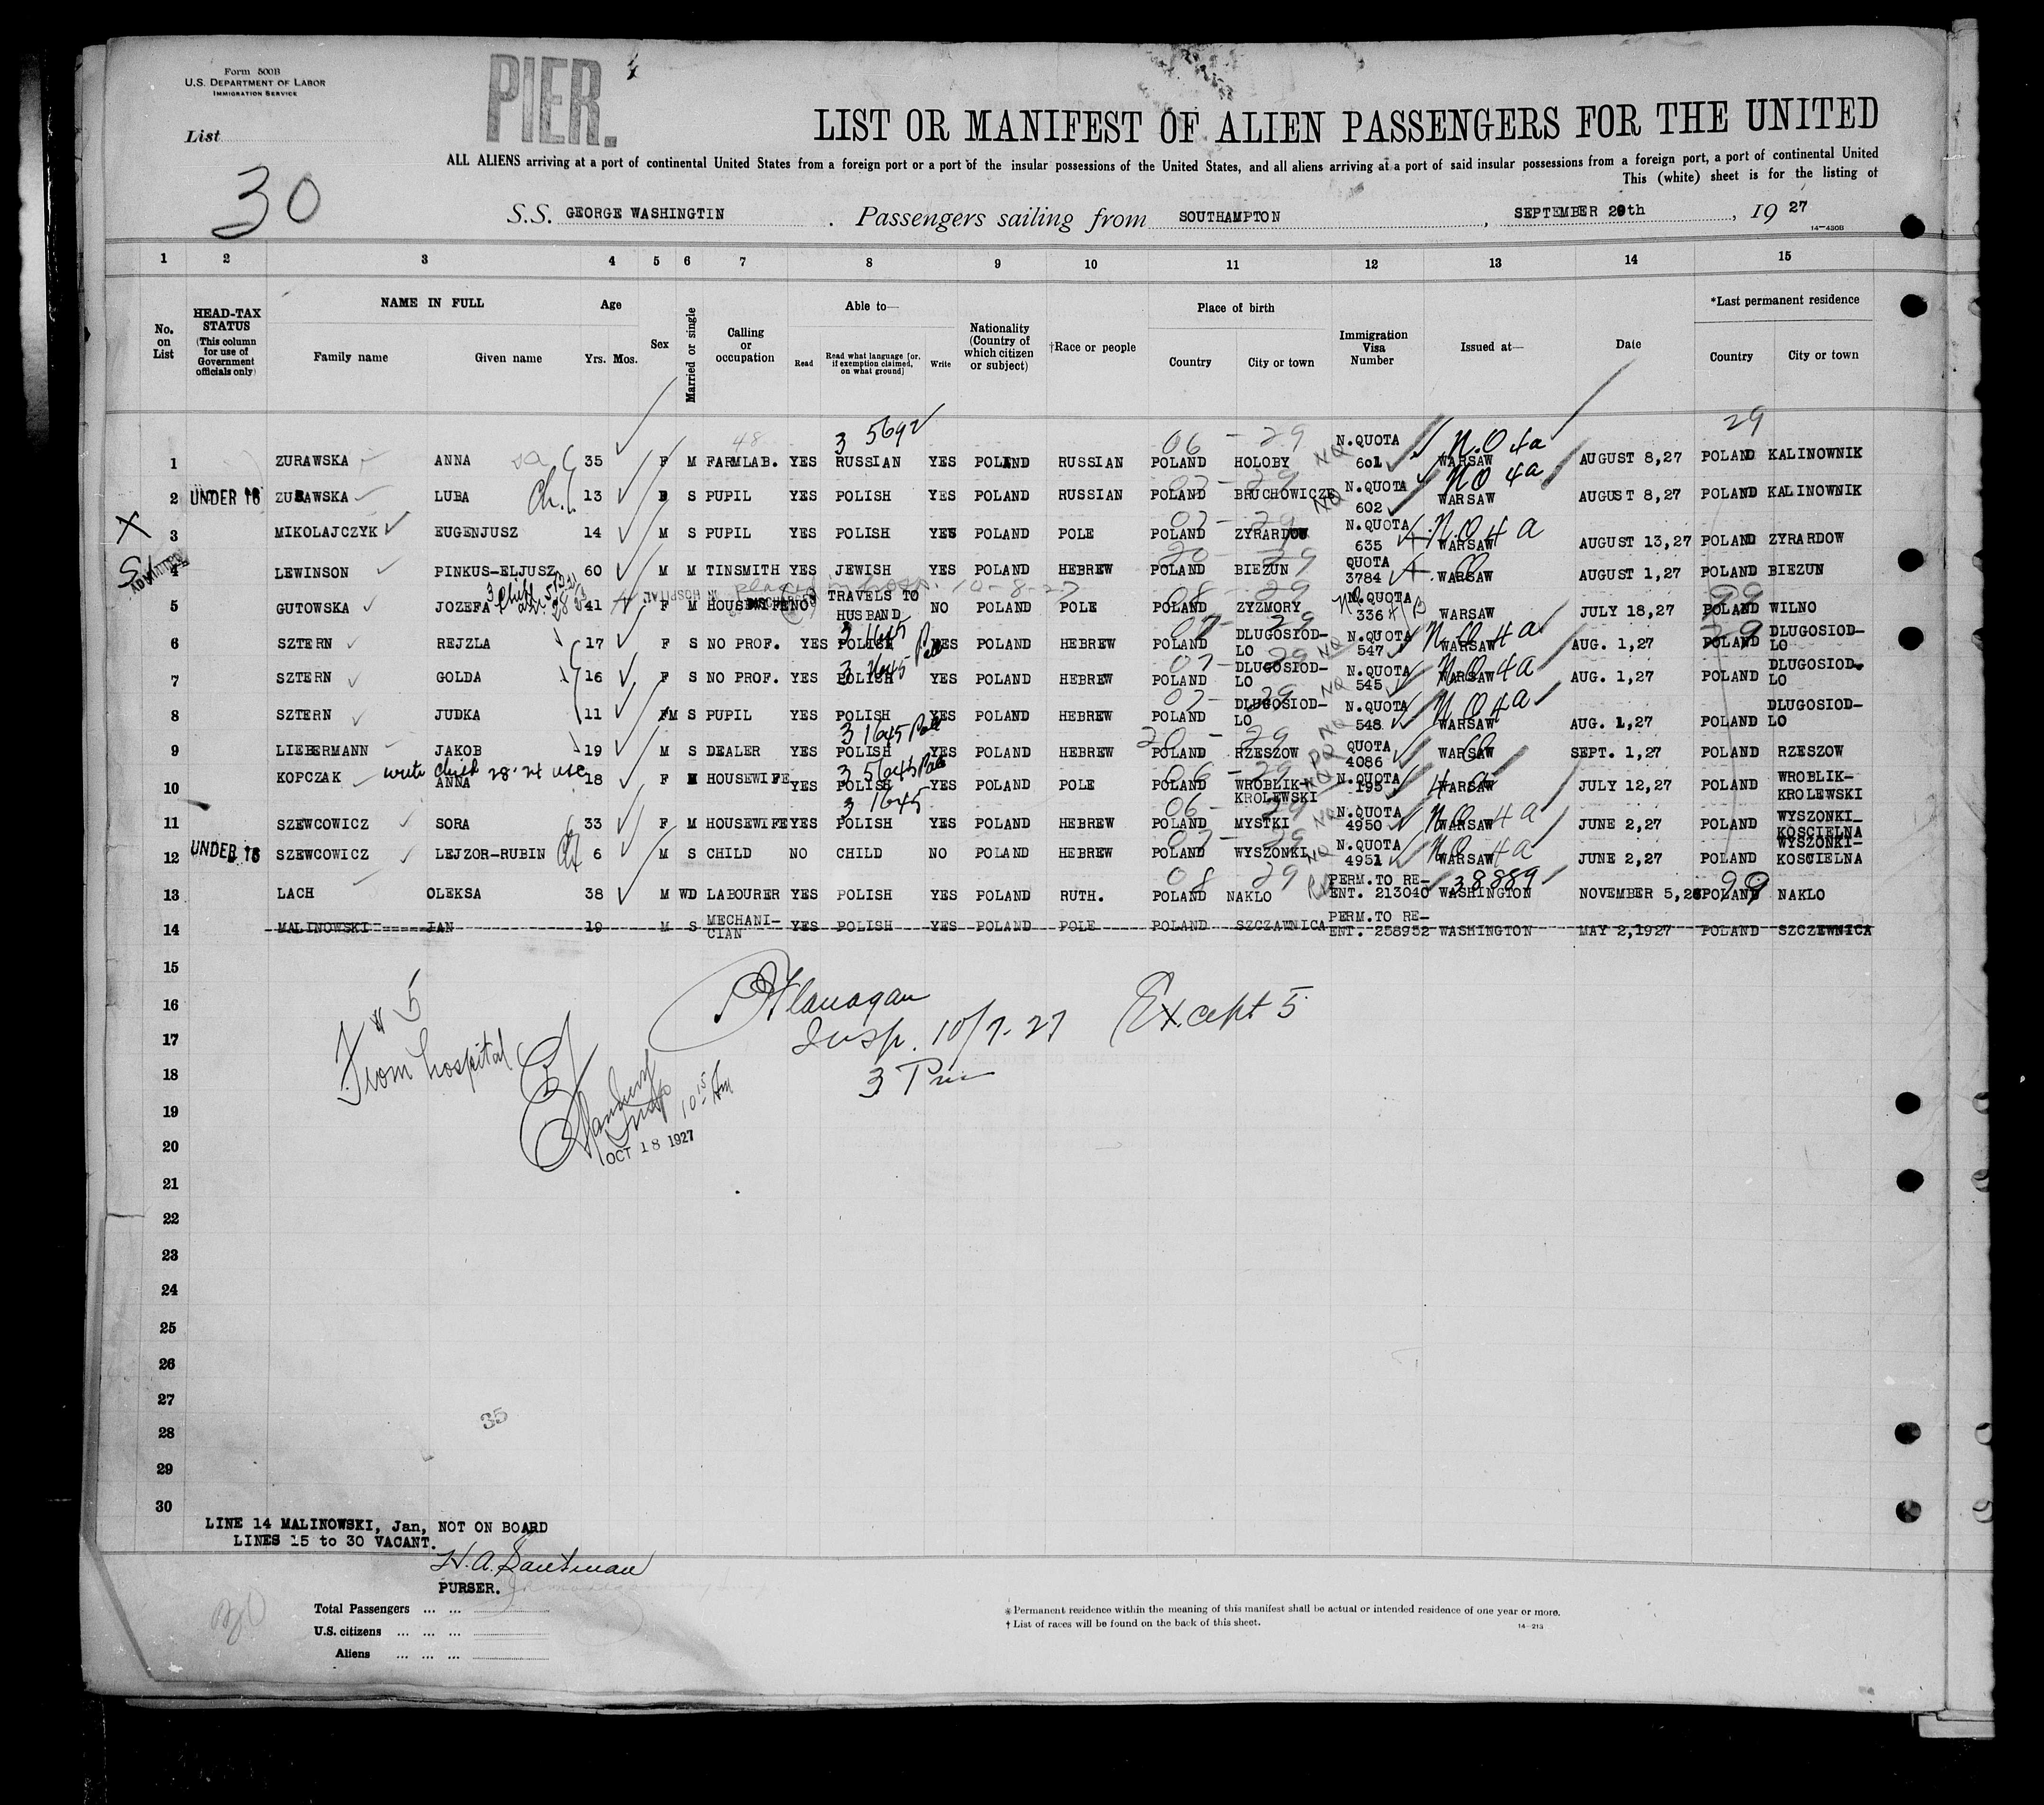 Form 500B
U.S. DEPARTMENT OF LABOR
IMMIGRATION SERVICE
PIER.
List
30
LIST OR MANIFEST OF ALIEN PASSENGERS FOR THE UNITED
ALL ALIENS arriving at a port of continental United States from a foreign port or a port of the insular possessions of the United States, and all aliens arriving at a port of said insular possessions from a foreign port, a port of continental United
This (white) sheet is for the listing of
S.S. GEORGE WASHINGTIN . Passengers sailing from SOUTHAMPTON , SEPTEMBER 20th , 1927
14—430B
1 2 3 4 5 6 7 8 9 10 11 12 13 14 15
No. on List
HEAD-TAX STATUS (This column for use of Government officials only)
NAME IN FULL
Family name Given name
Age
Yrs. Mos.
Sex
Married or single
Calling or occupation
Able to—
Read Read what language [or, if exemption claimed, on what ground] Write
Nationality (Country of which citizen or subject)
†Race or people
Place of birth
Country City or town
Immigration Visa Number
Issued at—
Date
*Last permanent residence
Country City or town
48 3 5692 06 - 29 N.O 4a 29
1 ZURAWSKA ANNA 35 F M FARMLAB. YES RUSSIAN YES POLAND RUSSIAN POLAND HOLOBY NQ N.QUOTA 601 WARSAW AUGUST 8,27 POLAND KALINOWNIK
2 UNDER 16 ZURAWSKA LUBA Ch. 13 S PUPIL YES POLISH YES POLAND RUSSIAN POLAND BRUCHOWICZE NQ N.QUOTA 602 WARSAW NO 4a AUGUST 8,27 POLAND KALINOWNIK
X
3 MIKOLAJCZYK EUGENJUSZ 14 M S PUPIL YES POLISH YES POLAND POLE POLAND ZYRARDOW N.QUOTA 635 WARSAW N.O 4a AUGUST 13,27 POLAND ZYRARDOW
ADMITTED
4 LEWINSON PINKUS-ELJUSZ 60 M M TINSMITH YES JEWISH YES POLAND HEBREW POLAND BIEZUN QUOTA 3784 WARSAW AUGUST 1,27 POLAND BIEZUN
placed in hosp. 10-8-27
5 GUTOWSKA JOZEFA 41 F M HOUSEWIFE NO TRAVELS TO HUSBAND NO POLAND POLE POLAND ZYZMORY N.QUOTA 336 WARSAW JULY 18,27 POLAND WILNO
6 SZTERN REJZLA 17 F S NO PROF. YES POLISH 3 1645 YES POLAND HEBREW POLAND DLUGOSIOD-LO N.QUOTA 547 WARSAW N.O 4a AUG. 1,27 POLAND DLUGOSIOD-LO
7 SZTERN GOLDA 16 F S NO PROF. YES POLISH 3 1645 YES POLAND HEBREW POLAND DLUGOSIOD-LO NQ N.QUOTA 545 WARSAW N.O 4a AUG. 1,27 POLAND DLUGOSIOD-LO
8 SZTERN JUDKA 11 M S PUPIL YES POLISH YES POLAND HEBREW POLAND DLUGOSIOD-LO NQ N.QUOTA 548 WARSAW N.O 4a AUG. 1,27 POLAND DLUGOSIOD-LO
9 LIEBERMANN JAKOB 19 M S DEALER YES POLISH 3 1645 YES POLAND HEBREW POLAND RZESZOW QUOTA 4086 WARSAW SEPT. 1,27 POLAND RZESZOW
10 KOPCZAK ANNA 18 F M HOUSEWIFE YES POLISH YES POLAND POLE POLAND WROBLIK-KROLEWSKI N.QUOTA 195 WARSAW JULY 12,27 POLAND WROBLIK-KROLEWSKI
3 1645
11 SZEWCOWICZ SORA 33 F M HOUSEWIFE YES POLISH YES POLAND HEBREW POLAND MYSTKI NQ N.QUOTA 4950 WARSAW N.O 4a JUNE 2,27 POLAND WYSZONKI-KOSCIELNA
12 UNDER 16 SZEWCOWICZ LEJZOR-RUBIN Ch 6 M S CHILD NO CHILD NO POLAND HEBREW POLAND WYSZONKI NQ N.QUOTA 4951 WARSAW NO 4a JUNE 2,27 POLAND WYSZONKI-KOSCIELNA
13 LACH OLEKSA 38 M WD LABOURER YES POLISH YES POLAND RUTH. POLAND NAKLO PERM.TO RE-ENT. 213040 WASHINGTON 38889 NOVEMBER 5,26 POLAND NAKLO
14 MALINOWSKI JAN 19 M S MECHANI-CIAN YES POLISH YES POLAND POLE POLAND SZCZAWNICA PERM.TO RE-ENT. 258952 WASHINGTON MAY 2,1927 POLAND SZCZEWNICA
15
16 Flanagan
17 Insp. 10/7-27 Except 5
18 3 Pm
# 5
From hospital
Insp 10 15 Am
OCT 18 1927
19
20
21
22
23
24
25
26
27
35
28
29
30
LINE 14 MALINOWSKI, Jan, NOT ON BOARD
LINES 15 to 30 VACANT.
PURSER.
30
Total Passengers ... ...
U.S. citizens ... ... ...
Aliens ... ... ...
* Permanent residence within the meaning of this manifest shall be actual or intended residence of one year or more.
† List of races will be found on the back of this sheet.
14—213